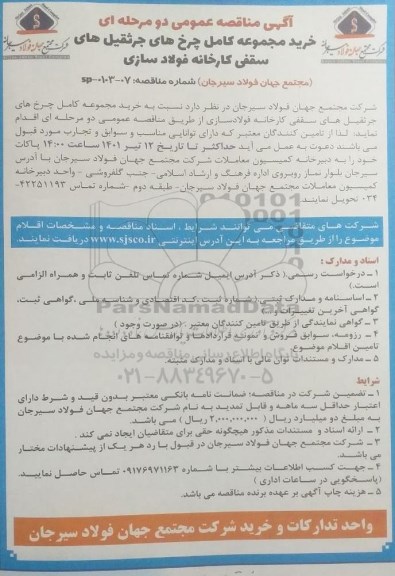 آگهی مناقصه عمومی دو مرحله ای
خرید مجموعه کامل چرخ های جرثقیل های
سقفی کارخانه فولاد سازی
(مجتمع جهان فولاد سیرجان) شماره مناقصه: sp-۰۱۰۳-۰۷
شرکت مجتمع جهان فولاد سیرجان در نظر دارد نسبت به خرید مجموعه کامل چرخ های
جرثقیل های سقفی کارخانه فولادسازی از طریق مناقصه عمومی دو مرحله ای اقدام
نماید؛ لذا از تامین کنندگان معتبر که دارای توانایی مناسب و سوابق و تجارب مورد قبول
می باشند دعوت به عمل می آید حداکثر تا تاریخ ۱۲ تیر ۱۴۰۱ ساعت ۱۴:۰۰ پاکات
خود را به دبیرخانه کمیسیون معاملات شرکت مجتمع جهان فولاد سیرجان با آدرس
سیرجان بلوار نماز روبروی اداره فرهنگ و ارشاد اسلامی- جنب گلفروشی - واحد دبیرخانه
کمیسیون معاملات مجتمع جهان فولاد سیرجان- طبقه دوم -شماره تماس ۴۲۲۵۱۱۹۳-
۰۳۴ تحویل نمایند.
شرکت های متقاضی می توانند شرایط ، اسناد مناقصه و مشخصات اقلام
موضوع را از طریق مراجعه به این آدرس اینترنتی www.sjsco.ir دریافت نمایند.
اسناد و مدارک :
۱ ـ درخواست رسمی ( ذکر آدرس ایمیل شماره تماس تلفن ثابت و همراه الزامی
است.)
۲ ـ اساسنامه و مدارک ثبتی (شماره ثبت ،کد اقتصادی و شناسه ملی ،گواهی ثبت،
گواهی آخرین تغییرات و...)
۳ ـ گواهی نمایندگی از طریق تامین کنندگان معتبر . (در صورت وجود )
۴ ـ رزومه، سوابق فروش و نمونه قراردادها و توافقنامه های انجام شده با موضوع
تامین اقلام موضوع.
۵ ـ مدارک و مستندات توان مالی با اسناد و مدارک مثبته.
ParsNamadData
پایگاه اطلاع رسانی مناقصه و مزایده
۰۲۱-۸۸۳۴۹۶۷۰-۵
شرایط
۱ ـ تضمین شرکت در مناقصه: ضمانت نامه بانکی معتبر بدون قید و شرط دارای
اعتبار حداقل سه ماهه و قابل تمدید به نام شرکت مجتمع جهان فولاد سیرجان
به مبلغ دو میلیارد ریال ( ۲,۰۰۰,۰۰۰,۰۰۰ ریال ) می باشد.
۲ ـ ارائه اسناد و مستندات مذکور هیچگونه حقی برای متقاضیان ایجاد نمی کند .
۳ ـ شرکت مجتمع جهان فولاد سیرجان در قبول یا رد هر یک از پیشنهادات مختار
می باشد.
۴ ـ جهت کسب اطلاعات بیشتر با شماره ۰۹۱۷۶۹۷۱۱۶۳ تماس حاصل نمایید.
(پاسخگویی در ساعات اداری )
۵ ـ هزینه چاپ آگهی بر عهده برنده مناقصه می باشد.
واحد تدارکات و خرید شرکت مجتمع جهان فولاد سیرجان